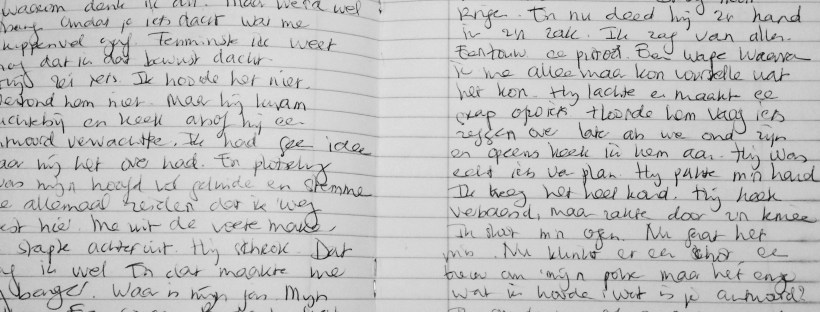 waarom dacht ik dit. Maar werd wel
bang omdat je iets dacht was me
kippenvel gaf. Tenminste ik weet
dat ik dat bewust dacht.
zei iets. Ik hoorde het niet.
verstond hem niet. Maar hij kwam
dichterbij en keek alsof hij ee
antwoord verwachtte. Ik had gee idee
waar hij het over had. En plotseling
was mijn hoofd vol geluide en stemme
die allemaal zeiden dat ik weg
moest hier. Me uit de voete make.
stapte achteruit. Hij schrok. Dat
ik wel En dat maakte me
bang. Waar is mijn jas. Mijn
krijge. En nu deed hij zn hand
in zn zak. Ik zag van alles.
Een touw. ee pistool. Een wape waarva
ik me alleemaal kon voorstelle wat
het kon. Hij lachte en maakte ee
grap opeens hoorde hem vaag iets
zeggen over late als we oud zijn
en opeens keek ik hem aan. Hij was
echt iets va plan. Hij pakte mn hand
Ik kreeg het heel koud. Hij keek
verbaasd, maar zakte door zn knieë
Ik sloot mn ogen. Nu gaat het
mis. Nu klinkt er een schot, ee
touw om mijn polse maar het enge
wat ik hoorde, wat is je antwoord?